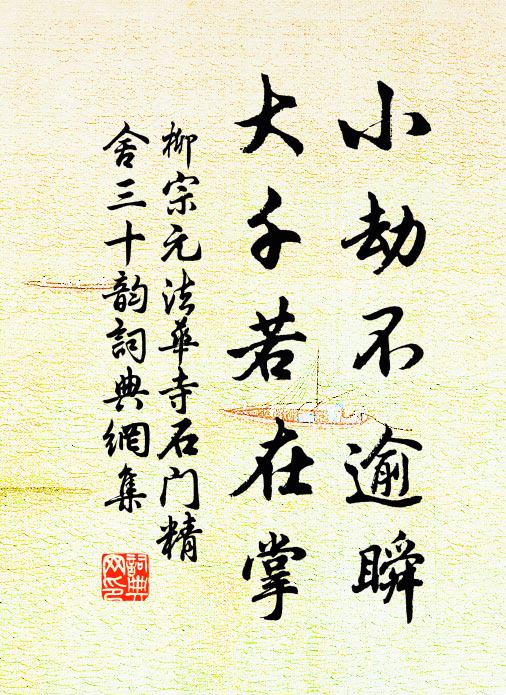 小劫不逾瞬
大千若在掌
柳宗元法華寺石门精
舍三十韵詞典網集
詞典
网印